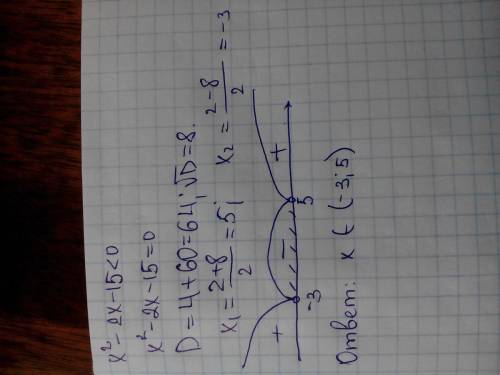 x²-2x-15<0
x²-2x-15=0
D=4+60=64; √D=8.
x₁=(2+8)/2=5; x₂=(2-8)/2=-3
+ - +
-3 5
Ответ: x ∈ (-3; 5)